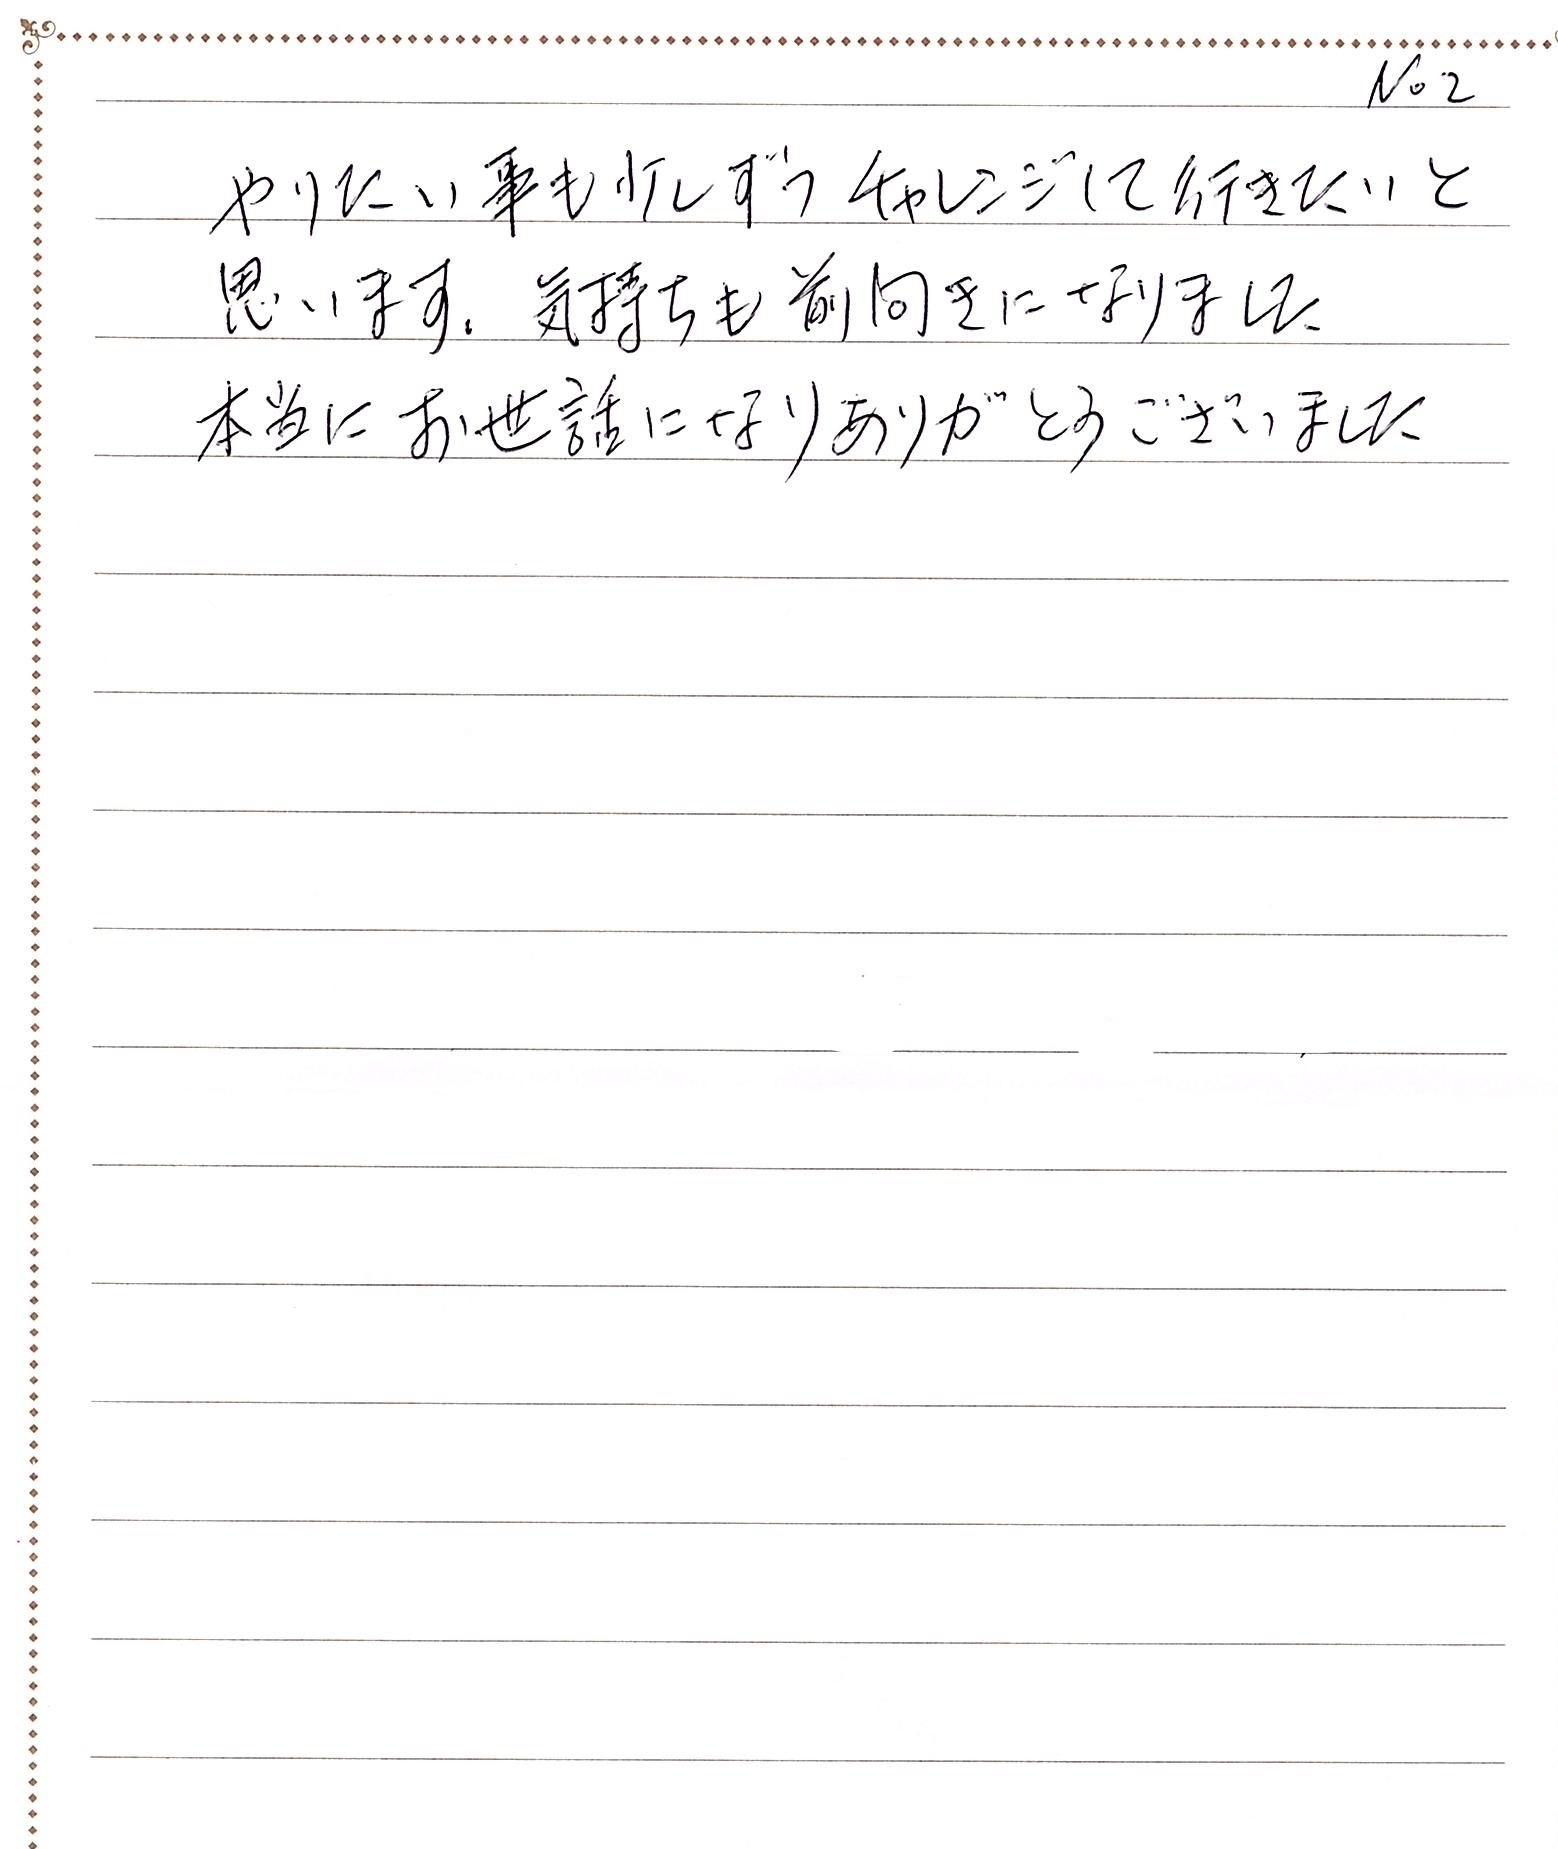 No 2
やりたい事も少しずつチャレンジして行きたいと
思います。気持ちも前向きになりました
本当にお世話になりありがとうございました